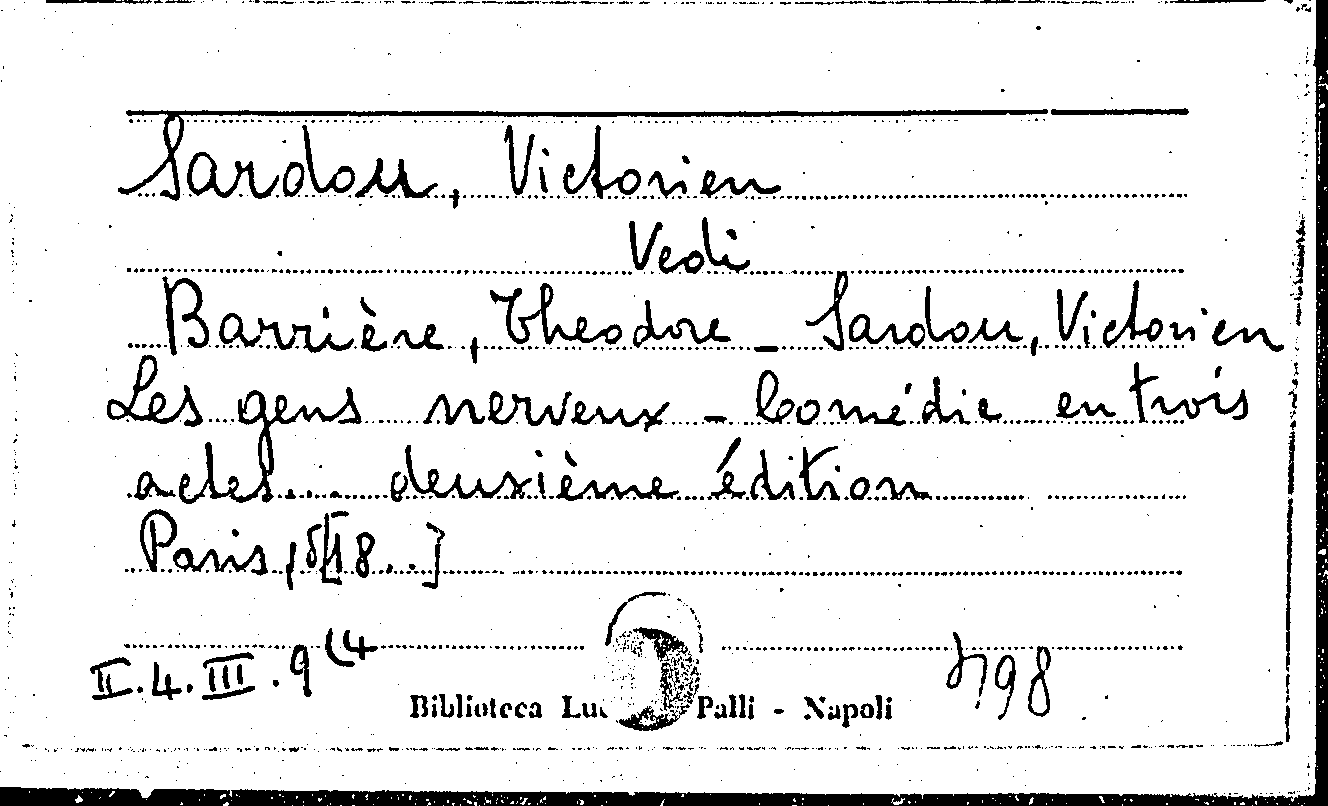 Sardou, Victorien
Vedi
Barrière, Theodore - Sardou, Victorien
Les gens nerveux - Comédie en trois
actes... deuxième édition
Paris, [18..]
II.4.III.9(4
Biblioteca Palli - Napoli